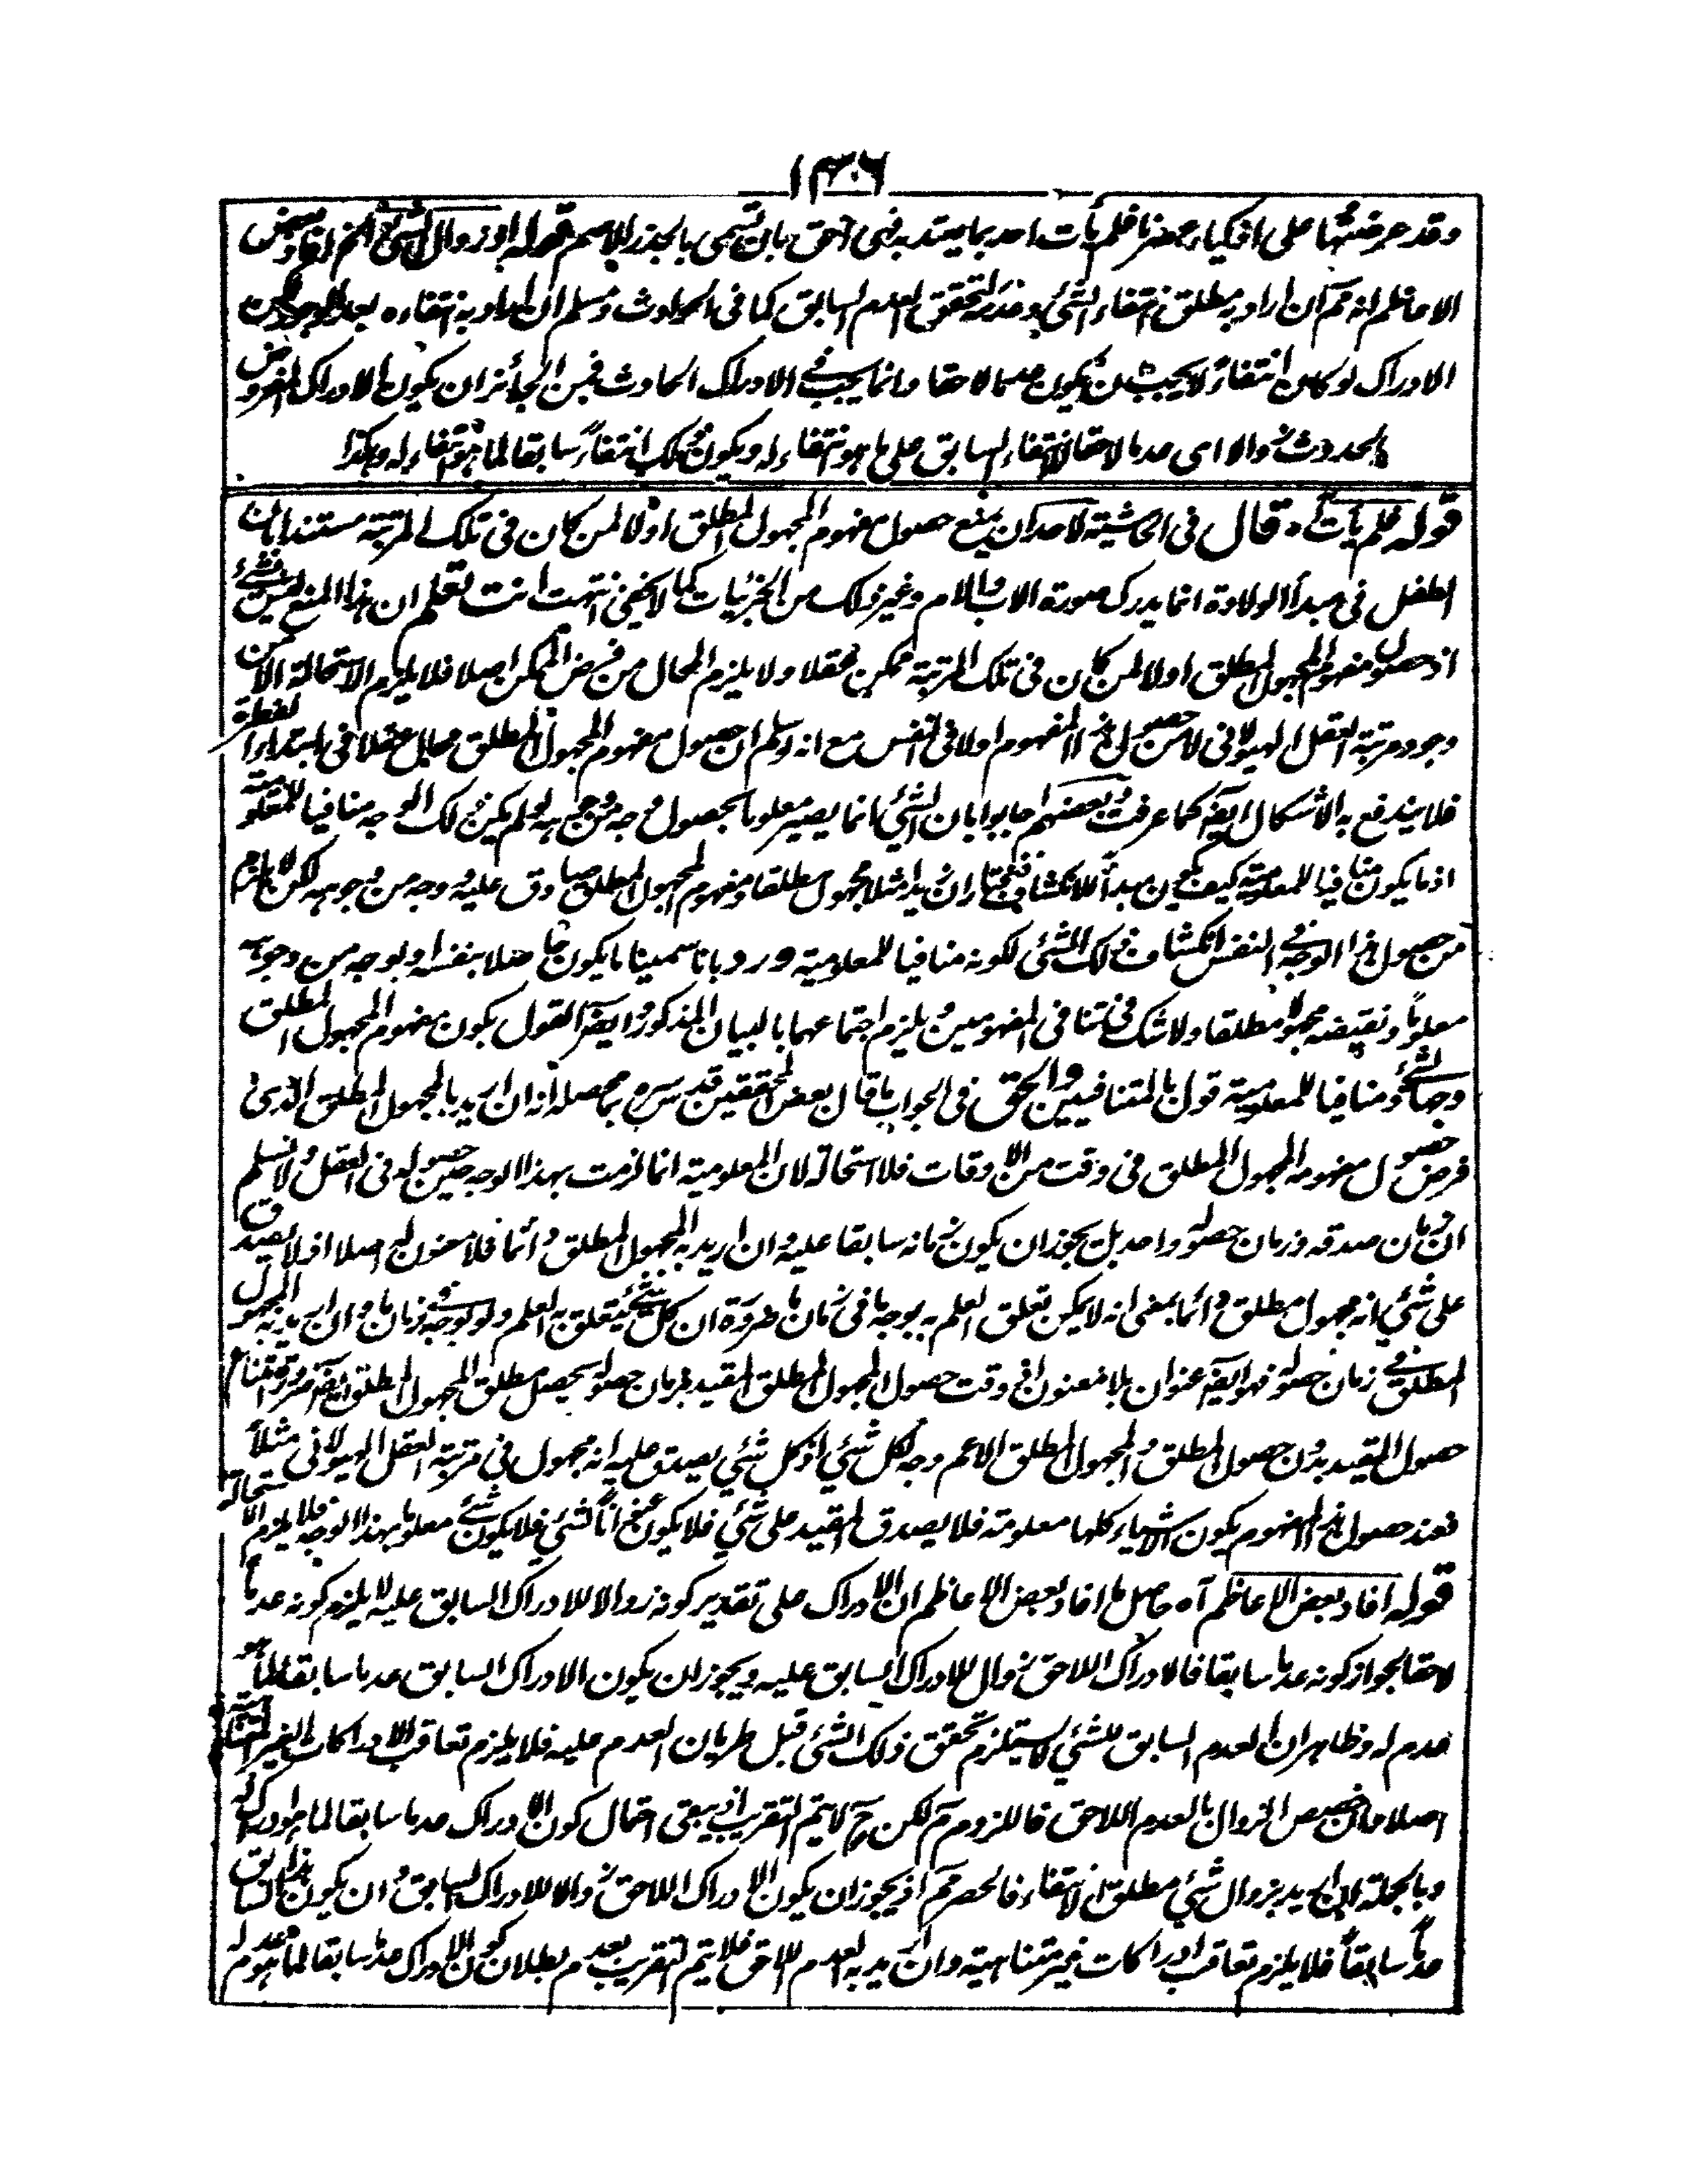 وقد عرضتها على اذكياء عصرنا فلم يأت احد بما يعتد به فهى احق بان تسمى بالجذر الاصم قوله او زوال الشئ الخ افاد بعض
الاعاظم انه مم ان اراد به مطلق انتفاء الشئ لتحقق العدم السابق كما فى الحوادث ومسلم ان اراد به انتفاءه بعد الوجود لكن
الادراك لو كان انتفاءً لا يجب ان يكون عدما لاحقا وانما يجب فى الادراك الحادث فمن الجائز ان يكون الادراك المفروض
الحدوث زوالا اى عدما لاحقا لانتفاء السابق على ما هو انتفاء له ويكون ذلك انتفاءً سابقا لما هو انتفاء له وهكذا
قوله فلم يأت. قال فى الحاشية لاحد ان يمنع حصول مفهوم المجهول المطلق اولا لمن كان فى تلك المرتبة مستندا بان
الطفل فى مبدأ الولادة انما يدرك صورة الاب والام وغير ذلك من الجزئيات كما لا يخفى انتهت انت تعلم ان هذا المنع ليس بشئ
اذ حصول مفهوم المجهول المطلق اولا لمن كان فى تلك المرتبة ممكن عقلا ولا يلزم المحال من فرض الممكن اصلا فلا يلزم الاستحالة الا من
وجود مرتبة العقل الهيولانى لا من حصول هذا المفهوم اولا فى النفس مع انه لو سلم ان حصول مفهوم المجهول المطلق محال عقلا فى ابتداء الفطرة
فلا يندفع به الاشكال ايضا كما عرفت وبعضهم اجابوا بان الشئ انما يصير معلوما بحصول وجه من وجوهه لو لم يكن ذلك الوجه منافيا للمعلومية
اذ ما يكون منافيا للمعلومية كيف يكون مبدأ للانكشاف فنختار ان زيدا مثلا مجهول مطلقا ومفهوم المجهول المطلق صادق عليه ووجه من وجوهه لكن لا يلزم
من حصول هذا الوجه فى النفس انكشاف ذلك الشئ لكونه منافيا للمعلومية ورد بانا سمينا ما يكون حاصلا بنفسه او بوجه من وجوهه
معلوماً ونقيضه مجهولا مطلقا ولا شك فى تنافى المفهومين ويلزم اجتماعهما بالبيان المذكور وايضا القول بكون مفهوم المجهول المطلق
وجها لشئ ومنافيا للمعلومية قول بالمتنافيين والحق فى الجواب ما قال بعض المحققين قدس سره بما حاصله انه ان اريد بالمجهول المطلق الذى
فرض حصول مفهومه المجهول المطلق فى وقت من الاوقات فلا استحالة لان المعلومية انما لزمت بهذا الوجه حين حصوله فى العقل ولا نسلم
ان زمان صدقه وزمان حصوله واحد بل يجوز ان يكون زمانه سابقا عليه وان اريد به المجهول المطلق دائما فلا معنون له اصلا اذ لا يصدق
على شئ انه مجهول مطلق دائما بمعنى انه لا يمكن تعلق العلم به بوجه ما فى زمان ما ضرورة ان كل شئ يتعلق به العلم ولو بوجه فى زمان ما وان اريد به المجهول
المطلق فى زمان حصوله فهو ايضا عنوان بلا معنون اذ فى وقت حصول المجهول المطلق المقيد بزمان حصوله يحصل مطلق المجهول المطلق ايضا ضرورة امتناع
حصول المقيد بدون حصول المطلق والمجهول المطلق الاعم وجه لكل شئ اذ كل شئ يصدق عليه انه مجهول فى مرتبة العقل الهيولانى مثلاً
فعند حصول هذا المفهوم يكون الاشياء كلها معلومة فلا يصدق المقيد على شئ فلا يكون عنوانا لشئ فلا يكون شئ معلوما بهذا الوجه فلا يلزم الاستحالة
قوله افاد بعض الاعاظم آه حاصل ما افاد بعض الاعاظم ان الادراك على تقدير كونه زوالا للادراك السابق عليه لا يلزم كونه عدماً
لاحقا لجواز كونه عدما سابقا فالادراك اللاحق زوال للادراك السابق عليه ويجوز ان يكون الادراك السابق عدما سابقا لما هو
عدم له وظاهر ان العدم السابق للشئ لا يستلزم تحقق ذلك الشئ قبل طريان العدم عليه فلا يلزم تعاقب الادراكات الغير المتناهية
اصلا وان خصص الزوال بالعدم اللاحق فاللزوم مم لكن ح لا يتم التقريب اذ يبقى احتمال كون الادراك عدما سابقا لما هو ادراك له
وبالجملة ان اريد بزوال شئ مطلق الانتفاء فالحصر مم اذ يجوز ان يكون الادراك اللاحق زوالا للادراك السابق وان يكون هذا السابق
عدماً سابقاً فلا يلزم تعاقب ادراكات غير متناهية وان اريد به العدم اللاحق فلا يتم التقريب بعدم بطلان كون الادراك عدما سابقا لما هو عدم له